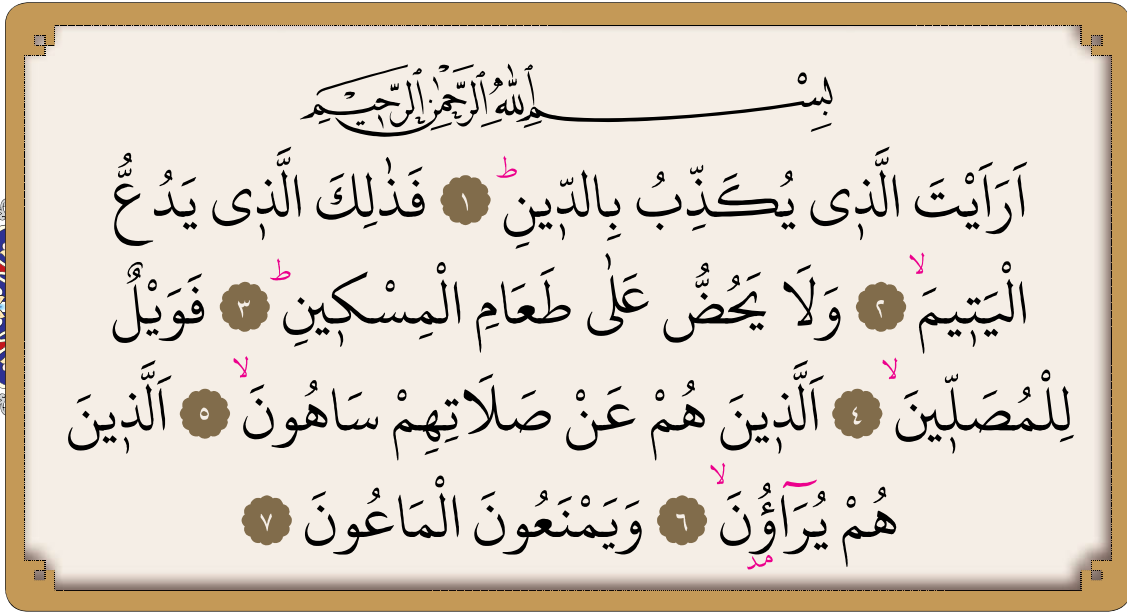 بِسْمِ اللّٰهِ الرَّحْمٰنِ الرَّحٖيمِ
اَرَاَيْتَ الَّذٖى يُكَذِّبُ بِالدّٖينِ ط ١ فَذٰلِكَ الَّذٖى يَدُعُّ
الْيَتٖيمَ لا ٢ وَلَا يَحُضُّ عَلٰى طَعَامِ الْمِسْكٖينِ ط ٣ فَوَيْلٌ
لِلْمُصَلّٖينَ لا ٤ اَلَّذٖينَ هُمْ عَنْ صَلَاتِهِمْ سَاهُونَ لا ٥ اَلَّذٖينَ
هُمْ يُرَآؤُنَ لا ٦ وَيَمْنَعُونَ الْمَاعُونَ ٧
مد